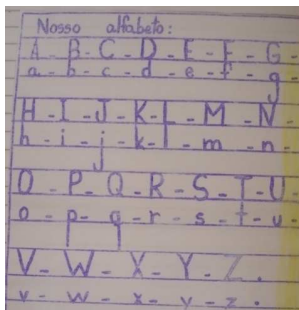 Nosso alfabeto:
A - B - C - D - E - F - G -
a - b - c - d - e - f - g
H - I - J - K - L - M - N -
h - i - j - k - l - m - n -
O - P - Q - R - S - T - U -
o - p - q - r - s - t - u -
V - W - X - Y - Z .
v - w - x - y - z .